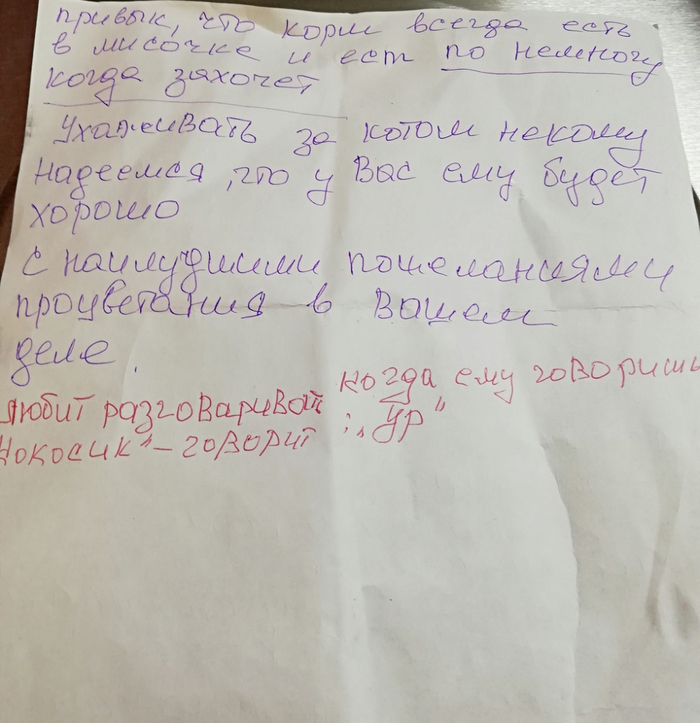 привык, что корм всегда есть
в мисочке и ест по немногу
когда захочет
Ухаживать за котом некому
Надеемся, что у Вас ему будет
хорошо
С наилучшими пожеланиями
процветания в Вашем
деле.
Любит разговаривать когда ему говоришь
"Кокосик" – говорит : „Ур"